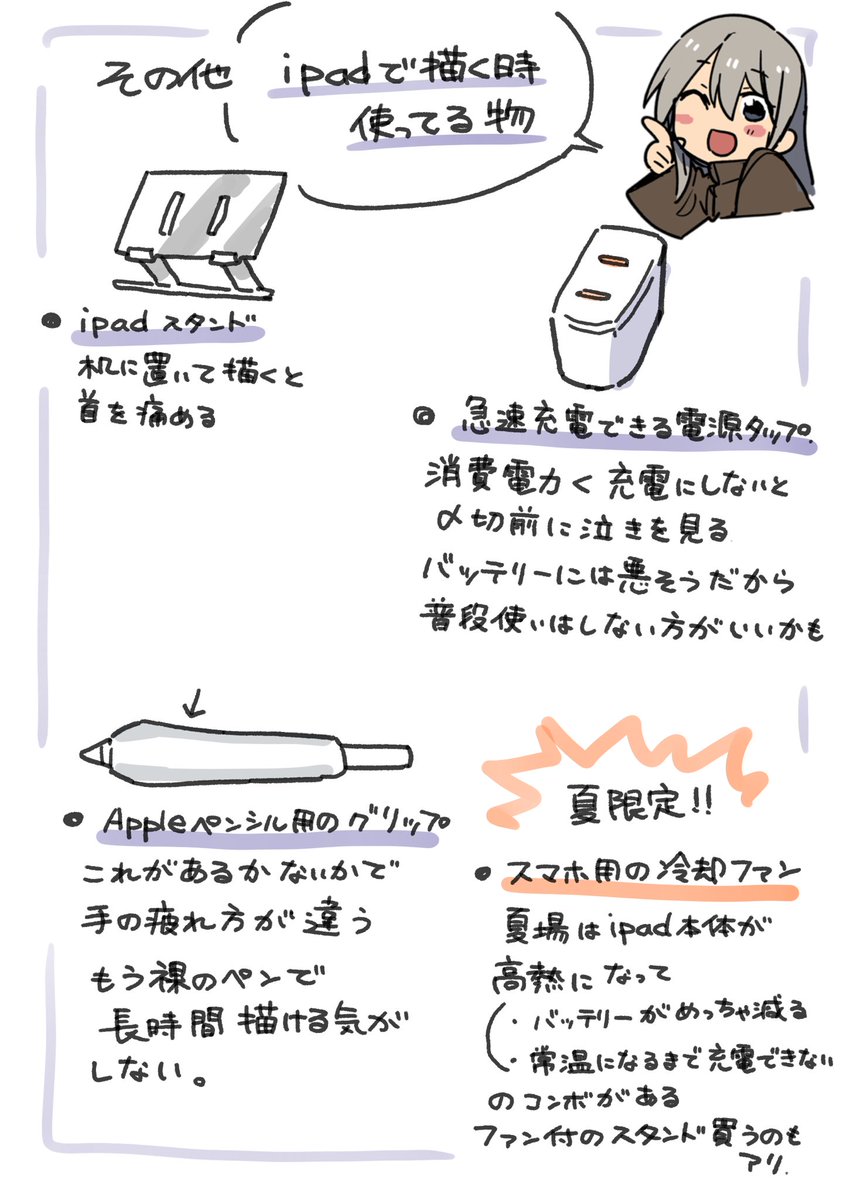 その他
ipadで描く時
使ってる物
● ipad スタンド
机に置いて描くと
首を痛める
◎ 急速充電できる電源タップ.
消費電力く充電にしないと
〆切前に泣きを見る
バッテリーには悪そうだから
普段使いはしない方がいいかも
● Appleペンシル用のグリップ
これがあるかないかで
手の疲れ方が違う
もう裸のペンで
長時間描ける気が
しない。
夏限定!!
● スマホ用の冷却ファン
夏場はipad本体が
高熱になって
・バッテリーがめっちゃ減る
・常温になるまで充電できない
のコンボがある
ファン付のスタンド買うのも
アリ.